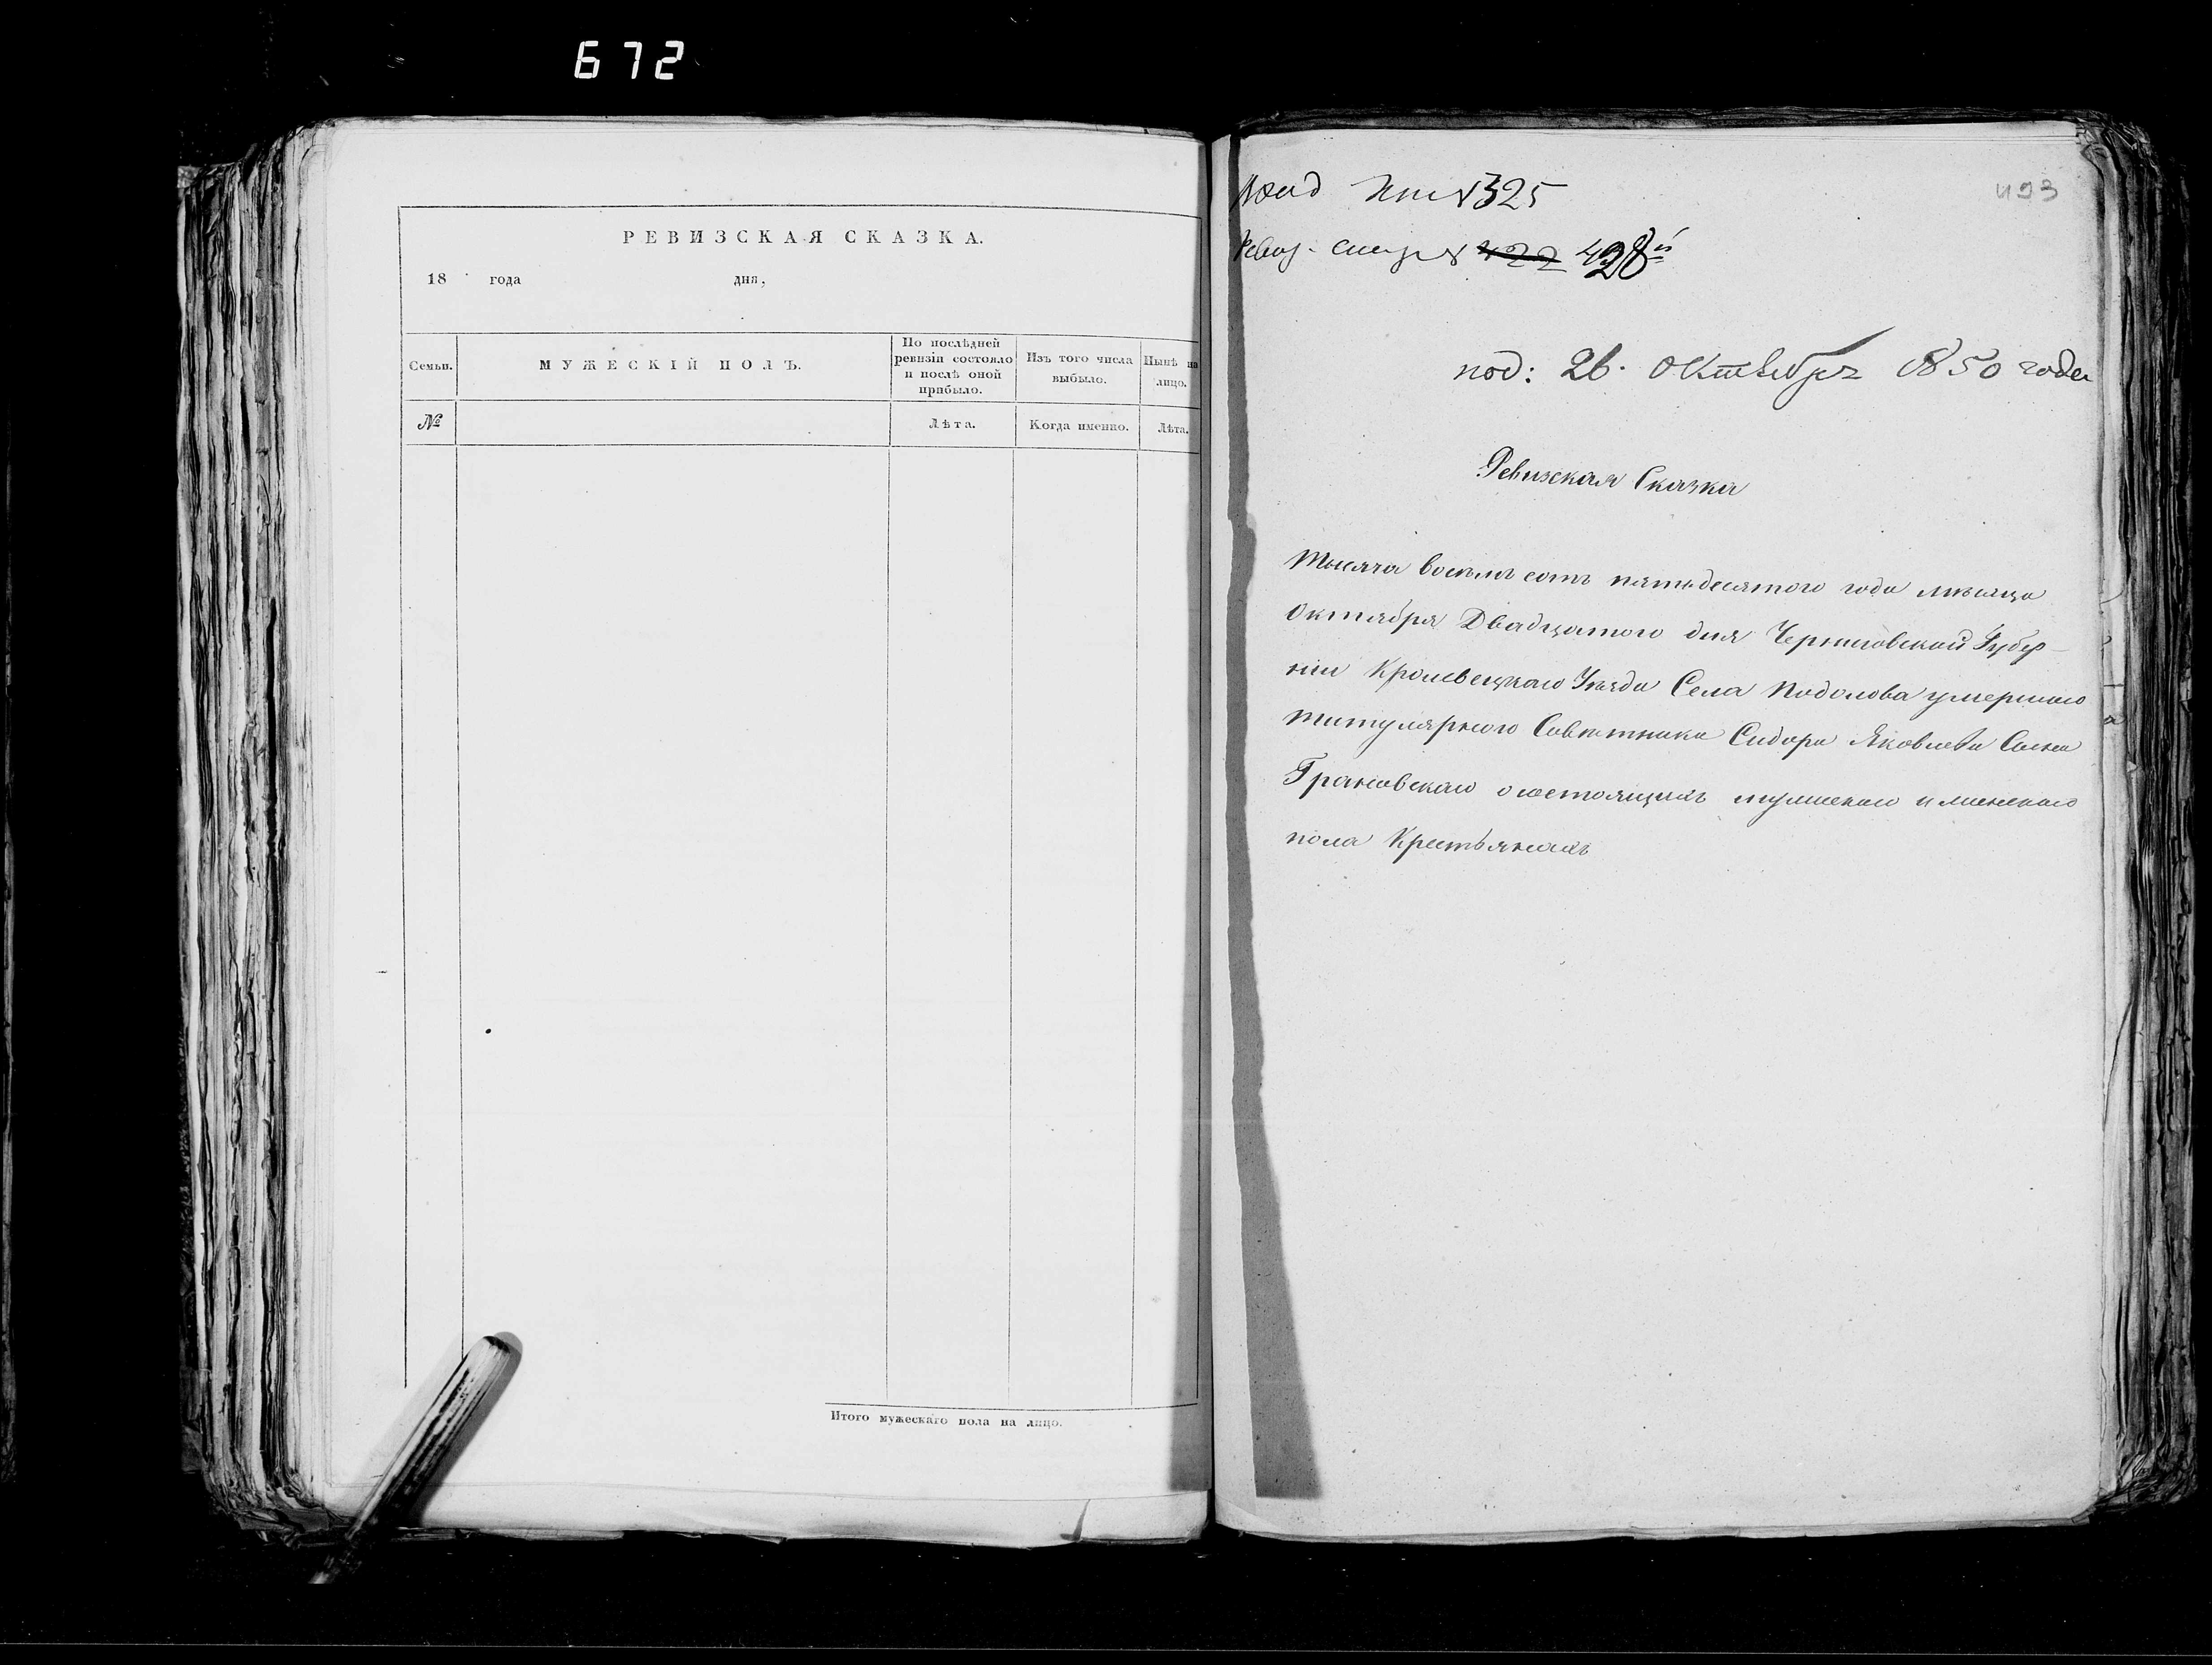 672
РЕВИЗСКАЯ СКАЗКА.
18 года дня,
Семьи. МУЖЕСКІЙ ПОЛЪ. По послѣдней ревизіи состояло и послѣ оной прибыло. Изъ того числа выбыло. Нынѣ на лицо.
№ Лѣта. Когда именно. Лѣта.
Итого мужескаго пола на лицо.
№ 325
493
422 428
под: 26. Октября 1850 года
Ревизская Сказка
Тысяча восемь сотъ пятьдесятого года мѣсяца
Октября Двадцатого дня Черниговской Губер-
нии Кролевецкаго Уѣзда Села Подолова умершаго
титулярного Совѣтника Сидора Яковлева Сына
Грановскаго о состоящихъ мужескаго и женскаго
пола Крестьянахъ